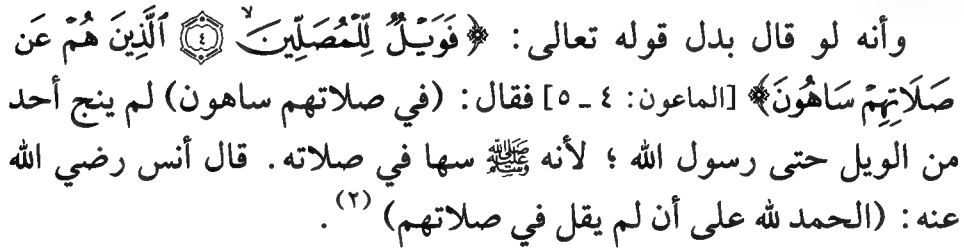 وأنه لو قال بدل قوله تعالى: ﴿فَوَيْلٌ لِّلْمُصَلِّينَ ۙ ٤ ٱلَّذِينَ هُمْ عَن
صَلَاتِهِمْ سَاهُونَ﴾ [الماعون: ٤ ـ ٥] فقال: (في صلاتهم ساهون) لم ينج أحد
من الويل حتى رسول الله؛ لأنه ﷺ سها في صلاته. قال أنس رضي الله
عنه: (الحمد لله على أن لم يقل في صلاتهم) (٢).